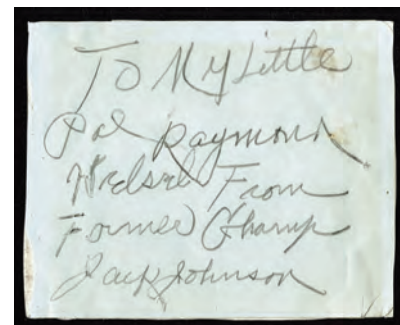 To My Little
Pal Raymond
From
Former Champ
Jack Johnson